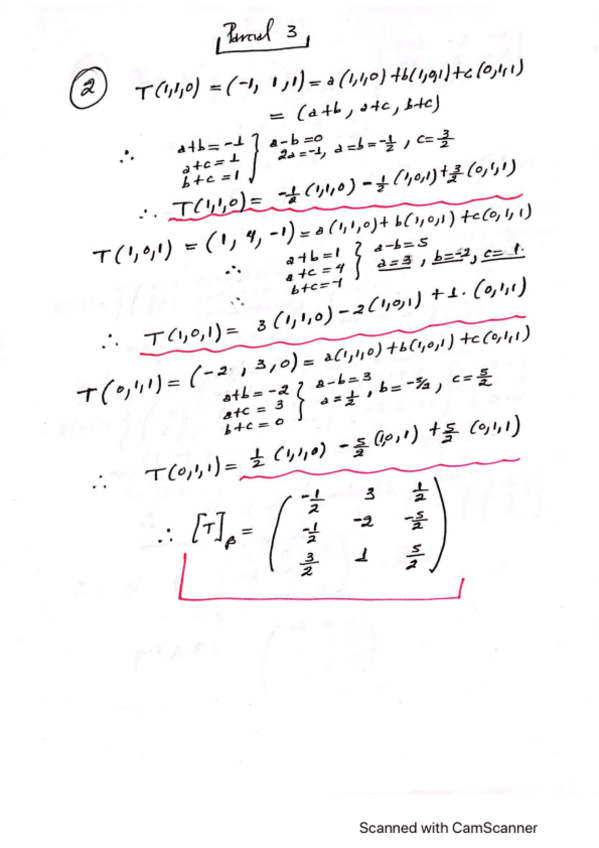 Parcial 3
② T(1,1,0) = (-1, 1, 1) = a(1,1,0) + b(1,0,1) + c(0,1,1)
= (a+b, a+c, b+c)
∴ a+b = -1
a+c = 1
b+c = 1
} a-b=0
2a=-1, a=b=-1/2, c=3/2
∴ T(1,1,0) = -1/2 (1,1,0) - 1/2 (1,0,1) + 3/2 (0,1,1)
T(1,0,1) = (1, 4, -1) = a(1,1,0) + b(1,0,1) + c(0,1,1)
∴ a+b=1
a+c=4
∴ b+c=-1
} a-b=5
a=3, b=-2, c=1.
∴ T(1,0,1) = 3(1,1,0) - 2(1,0,1) + 1. (0,1,1)
T(0,1,1) = (-2, 3, 0) = a(1,1,0) + b(1,0,1) + c(0,1,1)
a+b = -2
a+c = 3
b+c = 0
} a-b=3
a=1/2, b=-5/2, c=5/2
∴ T(0,1,1) = 1/2 (1,1,0) - 5/2 (1,0,1) + 5/2 (0,1,1)
∴ [T]β =
-1/2 3 1/2
-1/2 -2 -5/2
3/2 1 5/2
Scanned with CamScanner